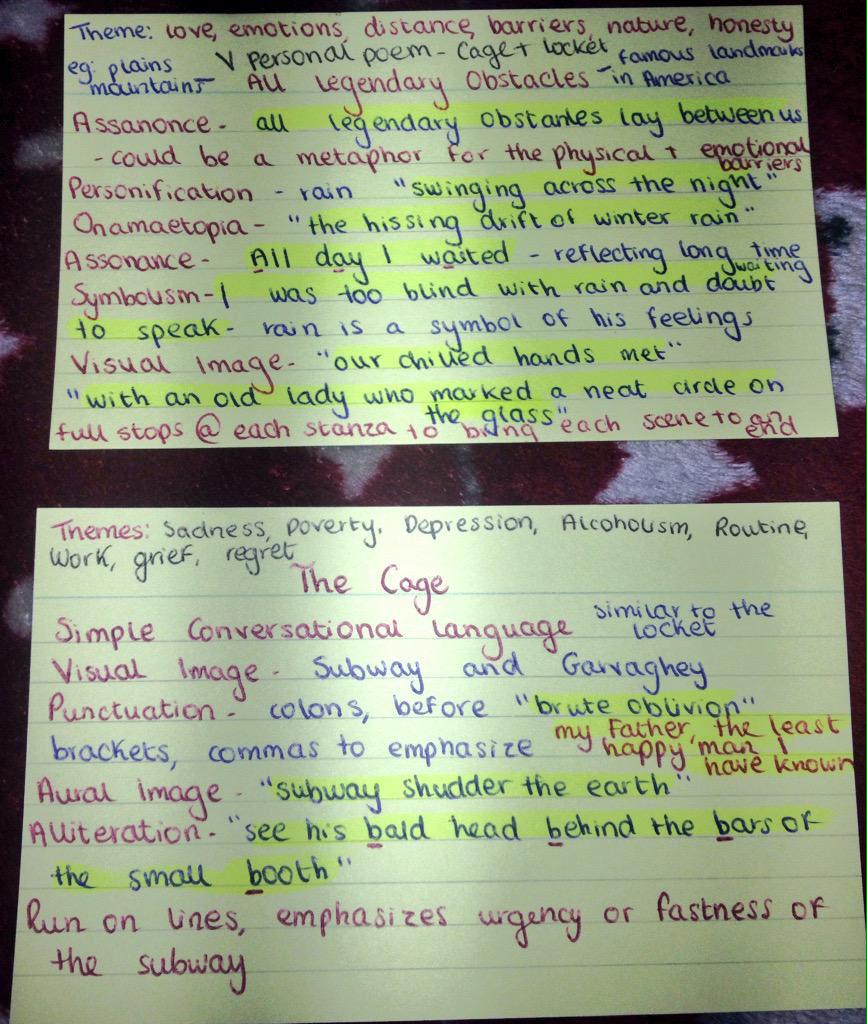 Theme: love, emotions, distance, barriers, nature, honesty
V personal poem - Cage + locket famous landmarks
eg: plains mountains All Legendary Obstacles - in America
Assanonce - all legendary obstacles lay between us
- could be a metaphor for the physical + emotional barriers
Personification - rain "swinging across the night"
Onamaetopia - "the hissing drift of winter rain"
Assonance - All day I waited - reflecting long time waiting
Symbolism - I was too blind with rain and doubt
to speak - rain is a symbol of his feelings
Visual Image - "our chilled hands met"
"with an old lady who marked a neat circle on
the glass"
full stops @ each stanza to bring each scene to an end
Themes: Sadness, Poverty, Depression, Alcoholism, Routine,
Work, grief, regret
The Cage
Simple Conversational Language similar to the locket
Visual Image - Subway and Garvaghey
Punctuation - colons, before "brute oblivion"
brackets, commas to emphasize my Father, the least happy man I have known
Aural image - "subway shudder the earth"
Alliteration - "see his bald head behind the bars of
the small booth"
Run on lines, emphasizes urgency or fastness of
the subway